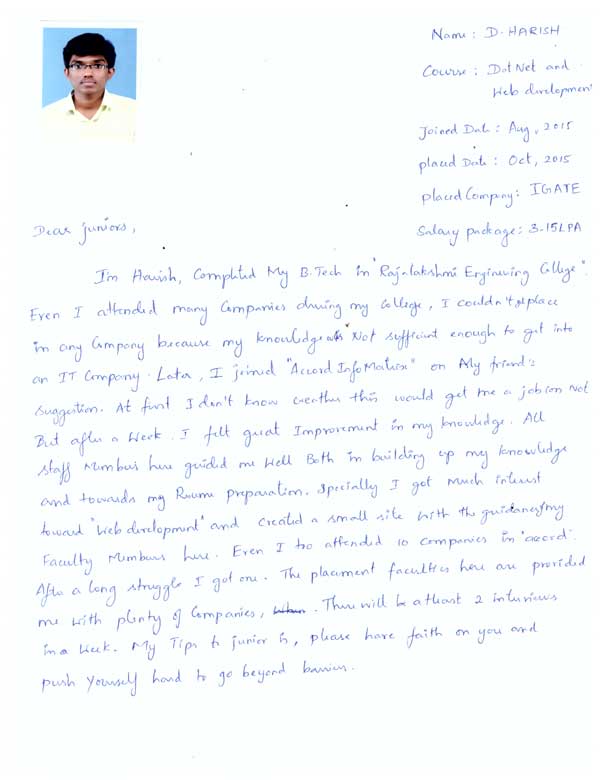 Name : D. HARISH
Course : Dot Net and
Web development
Joined Date : Aug, 2015
placed Date : Oct, 2015
placed Company : IGATE
Salary package : 3.15LPA
Dear juniors,
I'm Harish, Completed My B.Tech in "Rajalakshmi Engineering College".
Even I attended many Companies during my College, I couldn't place
in any Company because my knowledge was Not sufficient enough to get into
an IT Company. Later, I joined "Accord Info Matrix" on My friend's
suggestion. At first I don't know weather this would get me a job or Not
But after a Week. I felt great Improvement in my knowledge. All
staff Members here guided me Well Both in building up my knowledge
and towards my Resume preparation. Specially I got Much interest
toward "Web development" and created a small site with the guidance of my
Faculty Members here. Even I too attended 10 companies in "accord".
After a long struggle I got one. The placement faculties here are provided
me with plenty of Companies, . There will be atleast 2 interviews
in a Week. My Tips to junior is, please have faith on you and
push yourself hard to go beyond barriers.